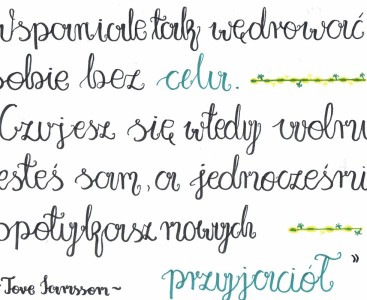 Wspaniale tak wędrować
sobie bez celu.
Czujesz się wtedy woln
jesteś sam, a jednocześni
spotykasz nowych
przyjaciół"
~Tove Jansson~